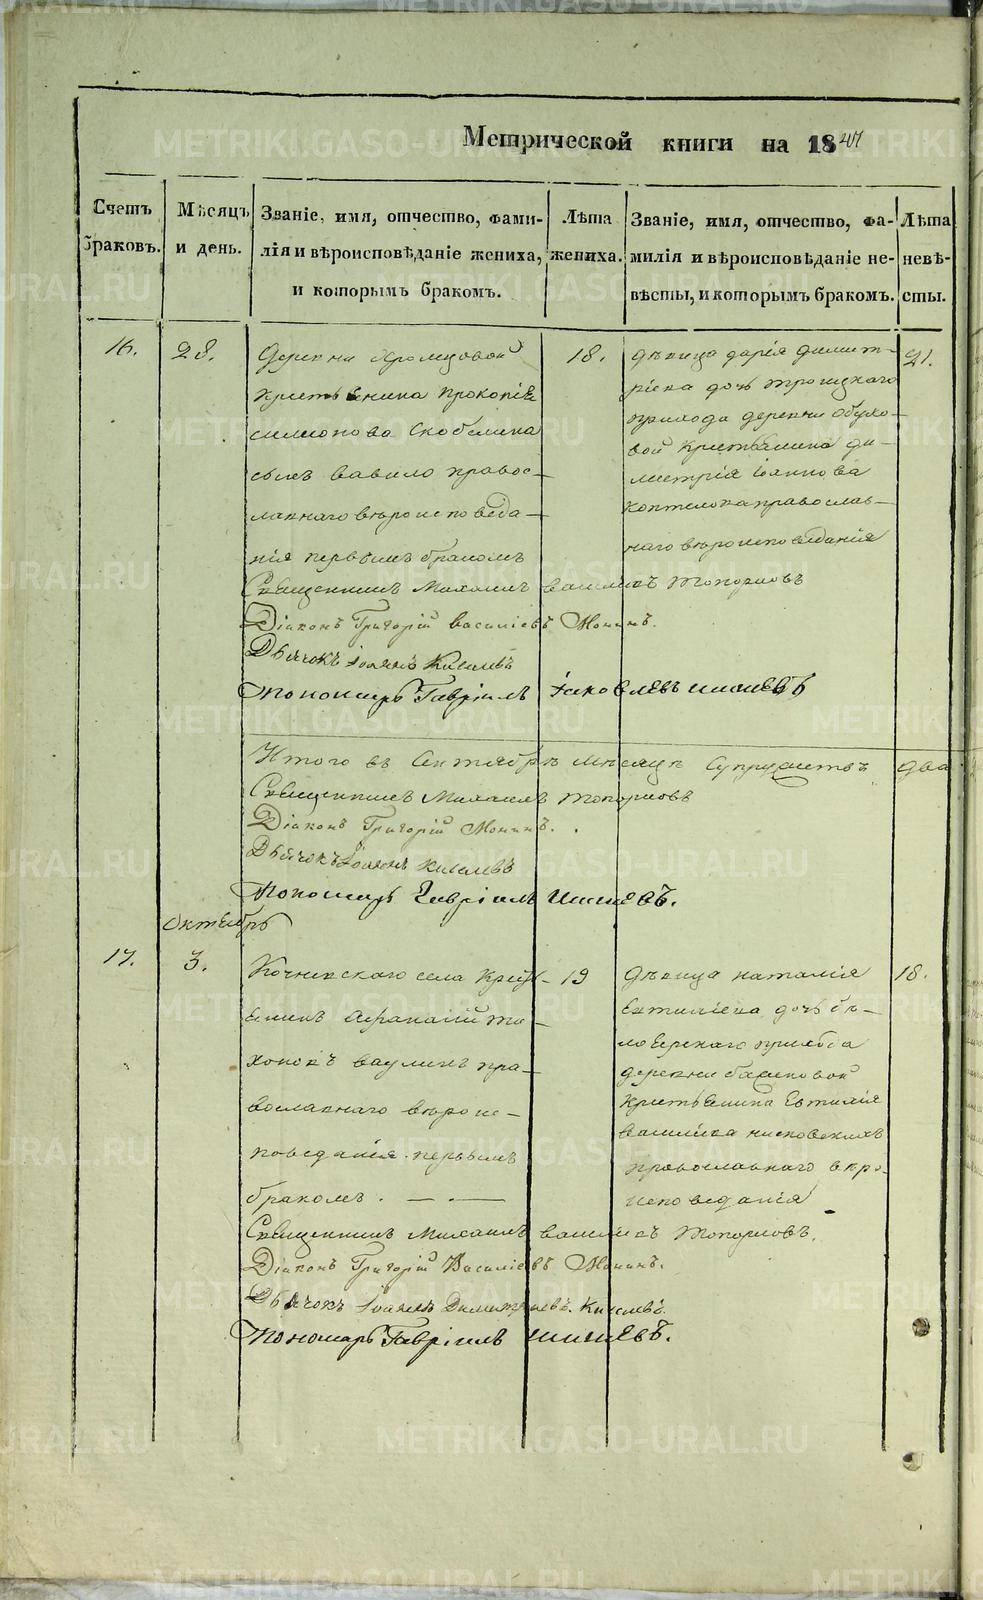 Метрической книги на 1847
Счетъ браковъ.
Мѣсяцъ и день.
Званіе, имя, отчество, фами-
лія и вѣроисповѣданіе жениха,
и которымъ бракомъ.
Лѣта
жениха.
Званіе, имя, отчество, фа-
милія и вѣроисповѣданіе не-
вѣсты, и которымъ бракомъ.
Лѣта
невѣ-
сты.
16.
28.
Деревни
крестьянина Прокопія
Симионова Скобелина
сынъ Вавило правос-
лавнаго вѣроисповѣда-
нія первымъ бракомъ
18.
дѣвица Дарія Димит-
ріева дочь Троицкаго
прихода деревни Обухо-
вой крестьянина Ди-
митрія Іоаннова
Коптелова православ-
наго вѣроисповѣданія
21.
Священникъ Михаилъ Васильевъ Топорковъ
Діаконъ Григорій Василіевъ Монинъ.
Дьячокъ Іоаннъ Киселевъ
Пономарь Гавріилъ Іаковлевъ Шишевъ
Итого въ Сентябрѣ мѣсяцѣ супружествъ два
Священникъ Михаилъ Топорковъ
Діаконъ Григорій Монинъ.
Дьячокъ Іоаннъ Киселевъ
Пономарь Гавріилъ Шишевъ.
Октябрь
17.
3.
Кочневскаго села крест-
янинъ Афанасій Ти-
хоновъ Ваулинъ пра-
вославнаго вѣроис-
повѣданія первымъ
бракомъ.
19
дѣвица Наталія
Евтиміева дочь бѣ-
лоярскаго прихода
деревни
крестьянина Евтимія
Василіева
православнаго вѣро-
исповѣданія
18.
Священникъ Михаилъ Васильевъ Топорковъ.
Діаконъ Григорій Василіевъ Монинъ.
Дьячокъ Іоаннъ Димитріевъ Киселевъ.
Пономарь Гавріилъ Шишевъ.
METRIKI.GASO-URAL.RU